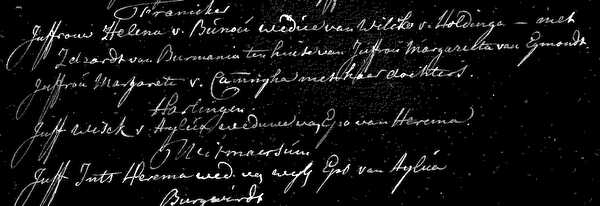 Franeker
Juffrouw Helena v. Bunou wedue van Wilcko v. Holdinga – met
Edzardt van Burmania ten huise van Juffrou Margareta van Egmondt.
Juffrou Margareta v. Camingha met haar dochters.
Harlingen.
Juff Wisck v Aylua weduwe van Epo van Herema.
Witmaersum.
Juff Juts Herema wed van wijl Epo van Aylua
Burgwerdt